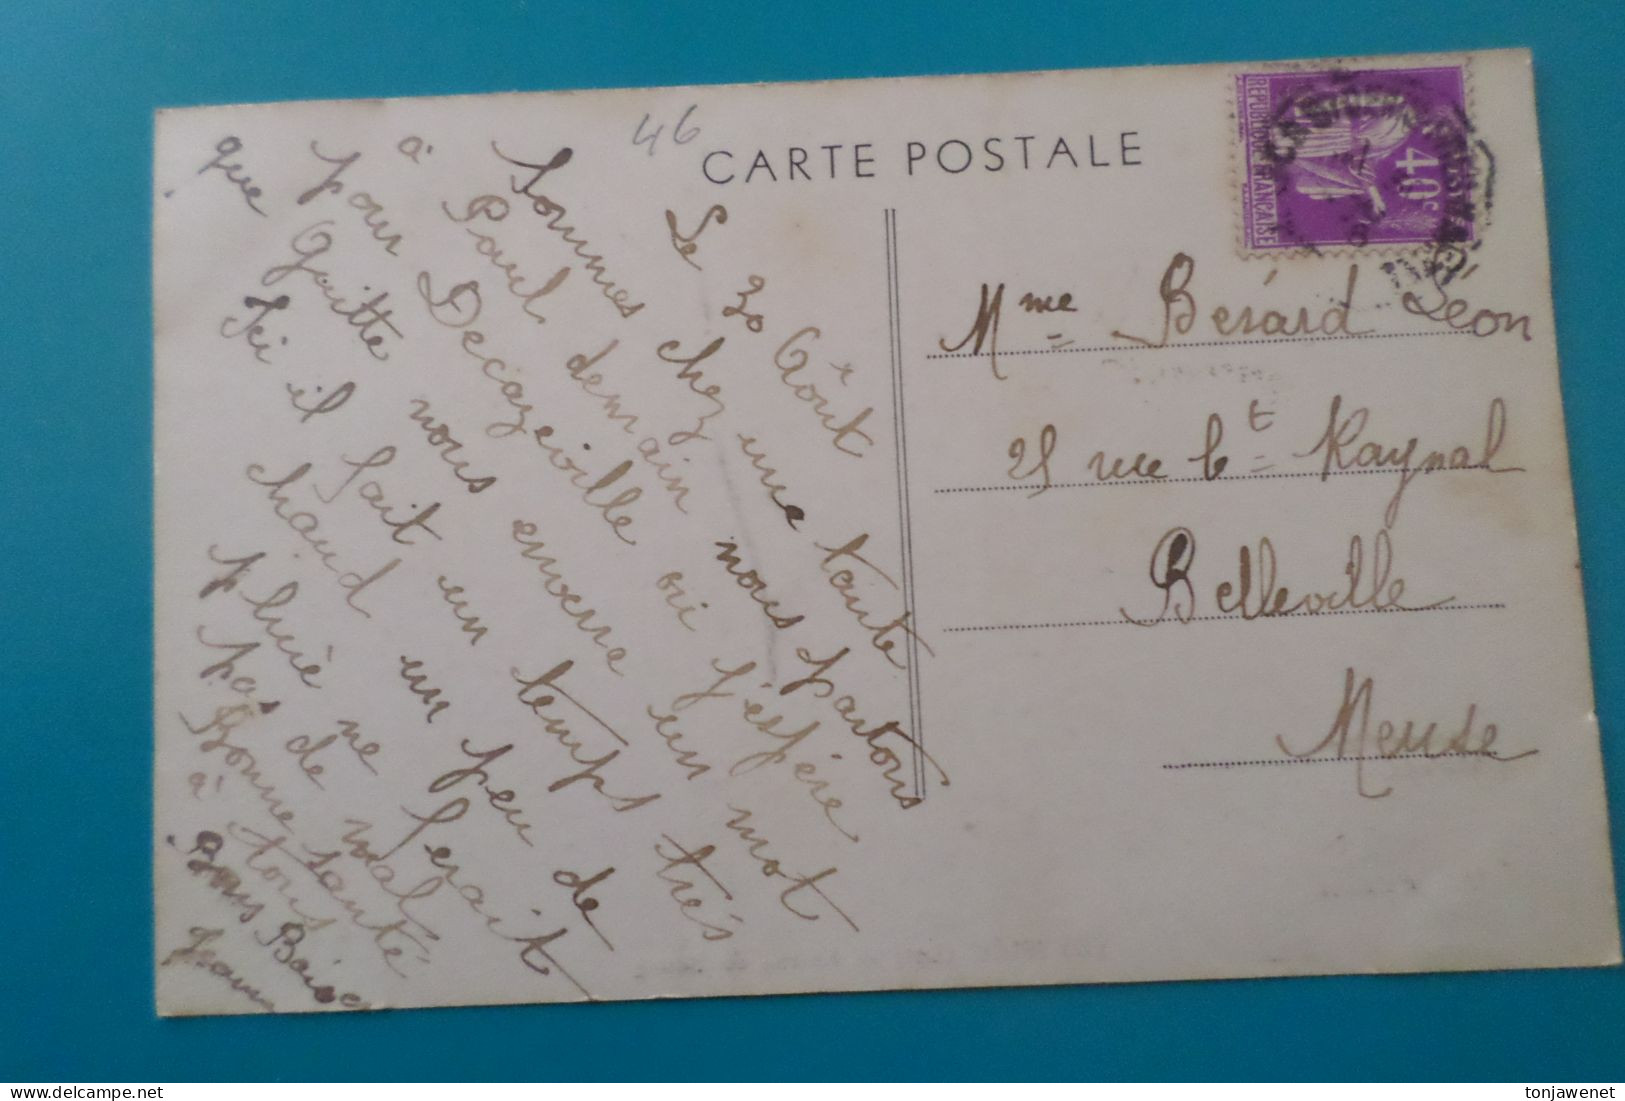 46
CARTE POSTALE
REPUBLIQUE FRANÇAISE
40c
Le 30 Août
Sommes chez une tante
à Paul demain nous partons
pour Decazeville où j'espère
que Gaitte nous enverra un mot
Ici il fait un temps très
chaud un peu de
pluie ne ferait
pas de mal
Bonne santé
à tous
Bons Baisers
Jeanne
Mme Berard Léon
rue Ct Raynal
Belleville
Meuse
tonjawenet